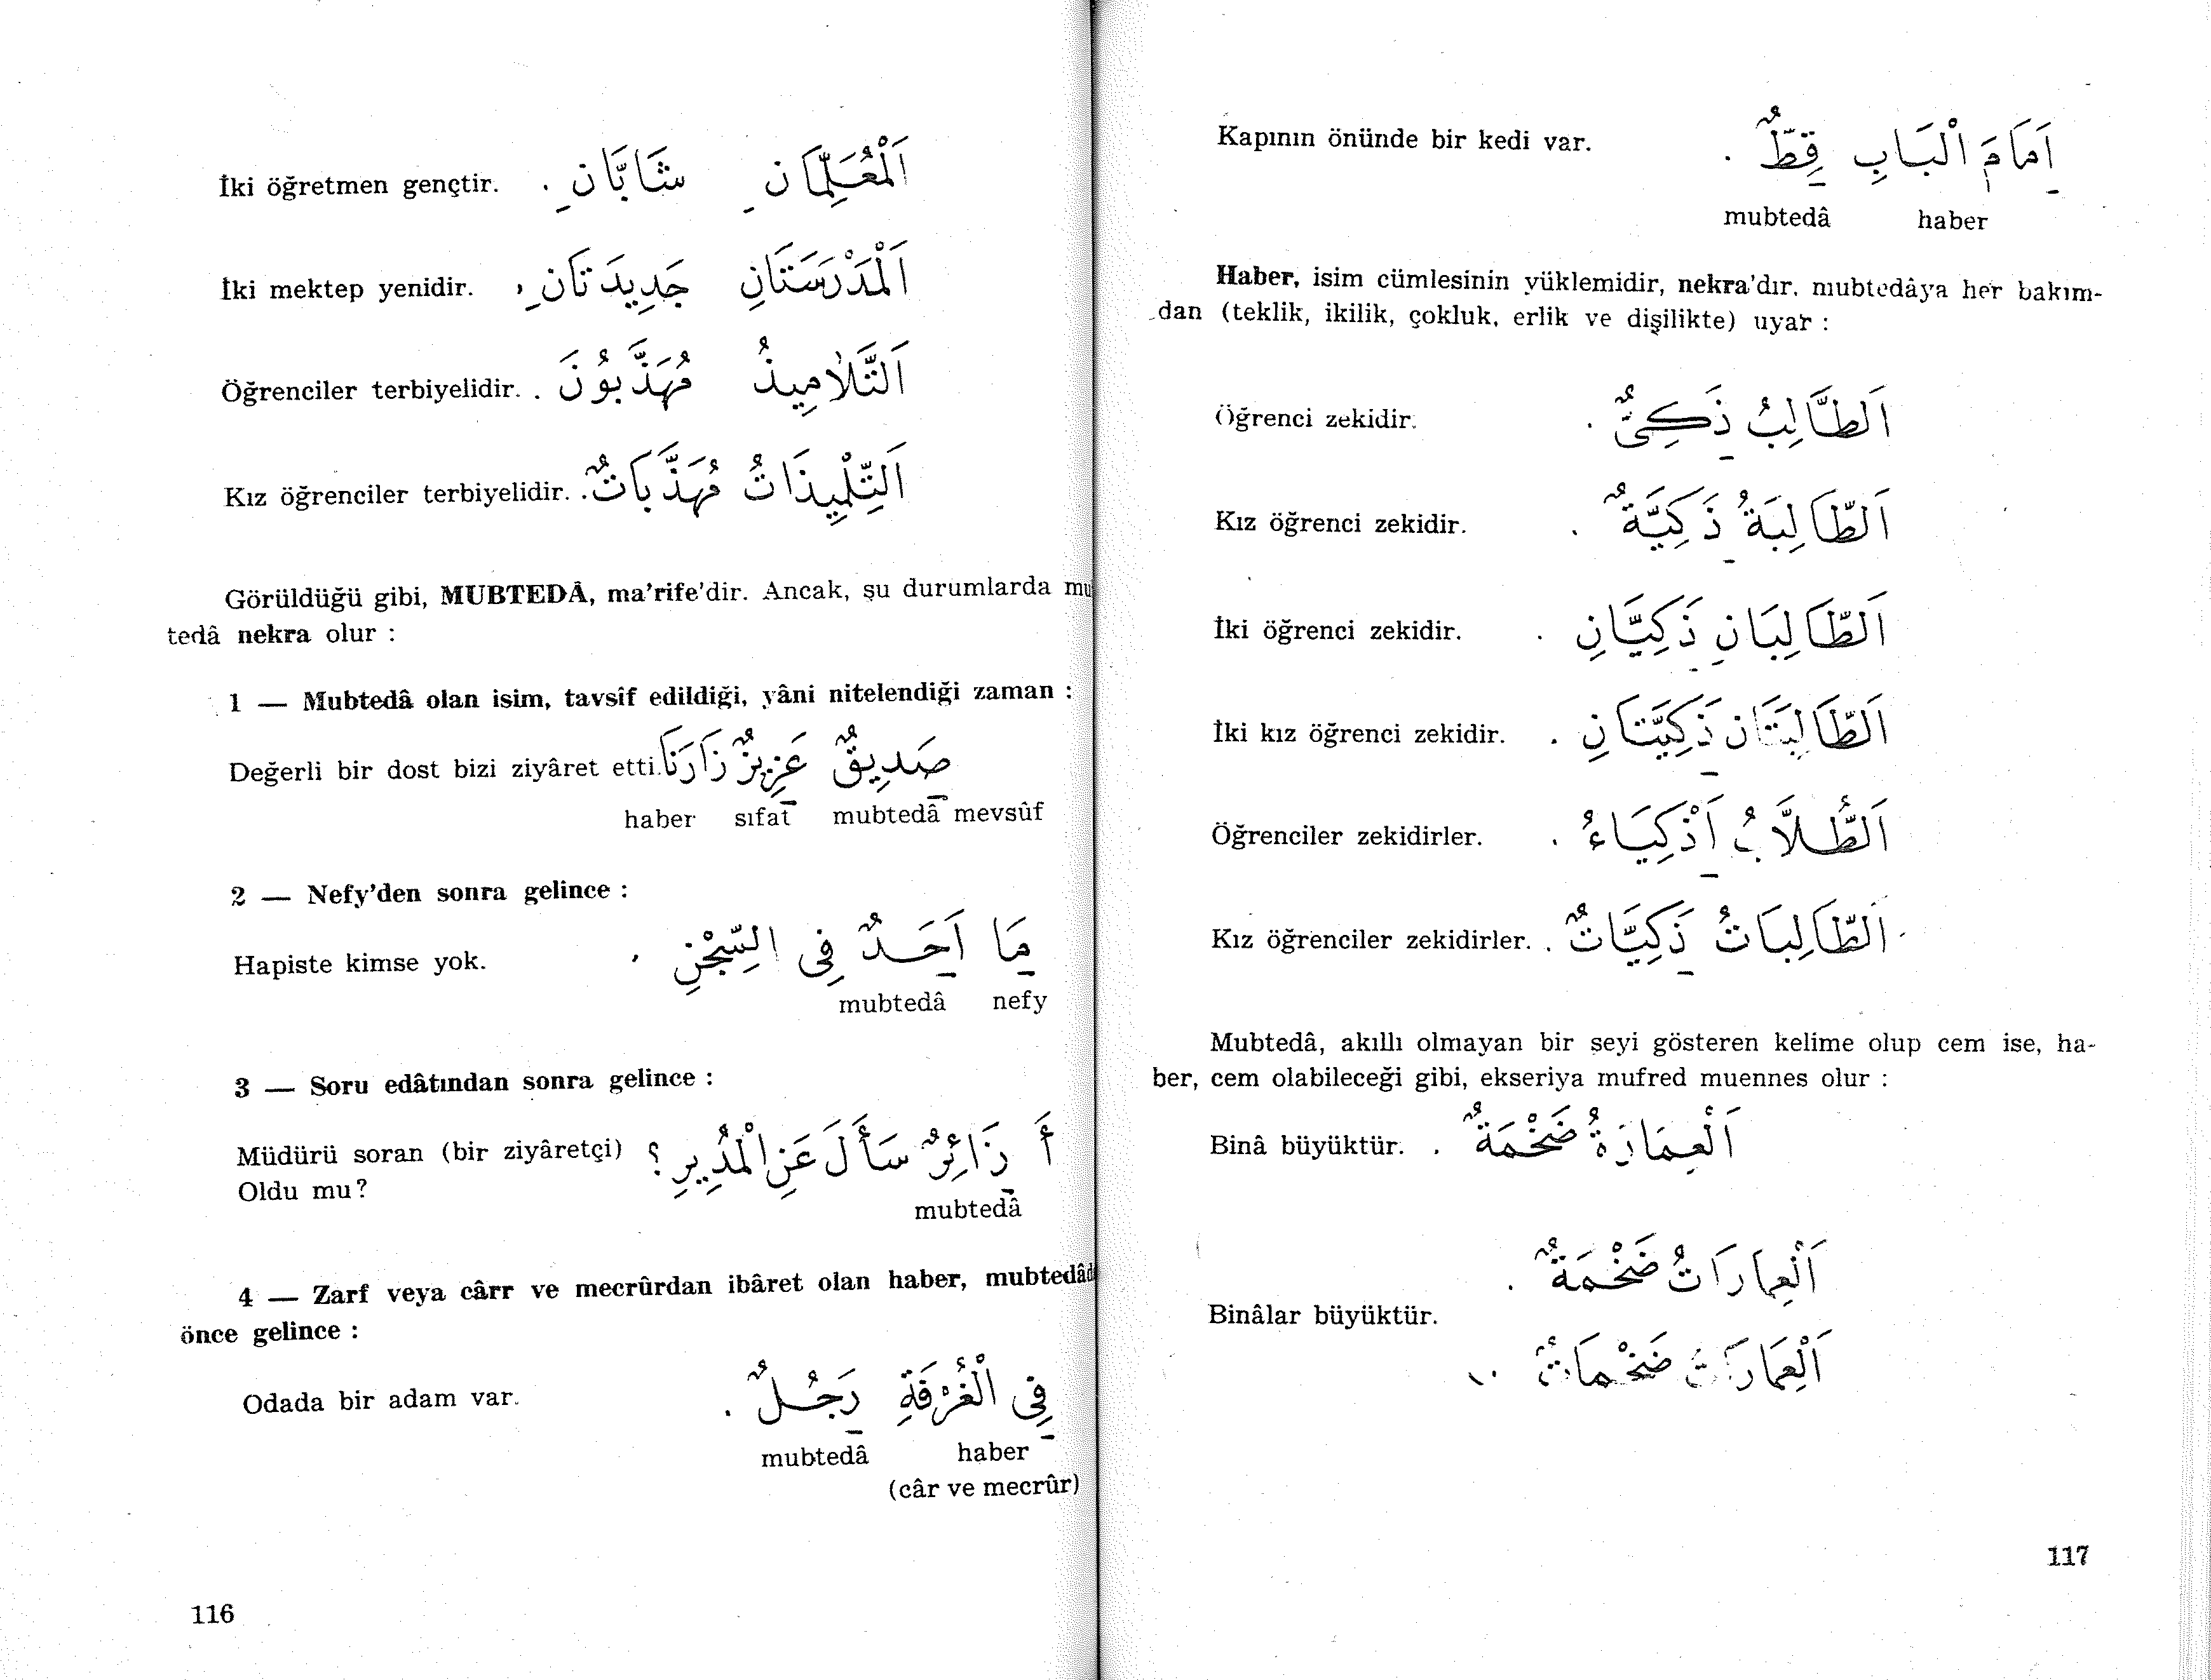 İki öğretmen gençtir. اَلْمُعَلِّمَانِ شَابَّانِ .
İki mektep yenidir. اَلْمَدْرَسَتَانِ جَدِيدَتَانِ .
Öğrenciler terbiyelidir. اَلتَّلَامِيذُ مُهَذَّبُونَ .
Kız öğrenciler terbiyelidir. اَلتِّلْمِيذَاتُ مُهَذَّبَاتٌ .
Görüldüğü gibi, MUBTEDÂ, ma'rife'dir. Ancak, şu durumlarda mu
tedâ nekra olur :
1 — Mubtedâ olan isim, tavsîf edildiği, yâni nitelendiği zaman :
Değerli bir dost bizi ziyâret etti. صَدِيقٌ عَزِيزٌ زَارَنَا
haber sıfat mubtedâ mevsûf
2 — Nefy'den sonra gelince :
Hapiste kimse yok. مَا اَحَدٌ فِى السِّجْنِ .
mubtedâ nefy
3 — Soru edâtından sonra gelince :
Müdürü soran (bir ziyâretçi) أَ زَائِرٌ سَأَلَ عَنِ الْمُدِيرِ ؟
Oldu mu?
mubtedâ
4 — Zarf veya cârr ve mecrûrdan ibâret olan haber, mubtedâd
önce gelince :
Odada bir adam var. فِى الْغُرْفَةِ رَجُلٌ .
mubtedâ haber
(câr ve mecrûr)
116
Kapının önünde bir kedi var. اَمَامَ الْبَابِ قِطٌّ .
mubtedâ haber
Haber, isim cümlesinin yüklemidir, nekra'dır. mubtedâya her bakım-
dan (teklik, ikilik, çokluk, erlik ve dişilikte) uyar :
Öğrenci zekidir. اَلطَّالِبُ ذَكِىٌّ .
Kız öğrenci zekidir. اَلطَّالِبَةُ ذَكِيَّةٌ .
İki öğrenci zekidir. اَلطَّالِبَانِ ذَكِيَّانِ .
İki kız öğrenci zekidir. اَلطَّالِبَتَانِ ذَكِيَّتَانِ .
Öğrenciler zekidirler. اَلطُّلَّابُ اَذْكِيَاءُ .
Kız öğrenciler zekidirler. اَلطَّالِبَاتُ ذَكِيَّاتٌ .
Mubtedâ, akıllı olmayan bir seyi gösteren kelime olup cem ise, ha-
ber, cem olabileceği gibi, ekseriya mufred muennes olur :
Binâ büyüktür. اَلْعِمَارَةُ ضَخْمَةٌ .
اَلْعِمَارَاتُ ضَخْمَةٌ .
Binâlar büyüktür.
اَلْعِمَارَاتُ ضَخْمَاتٌ .
117